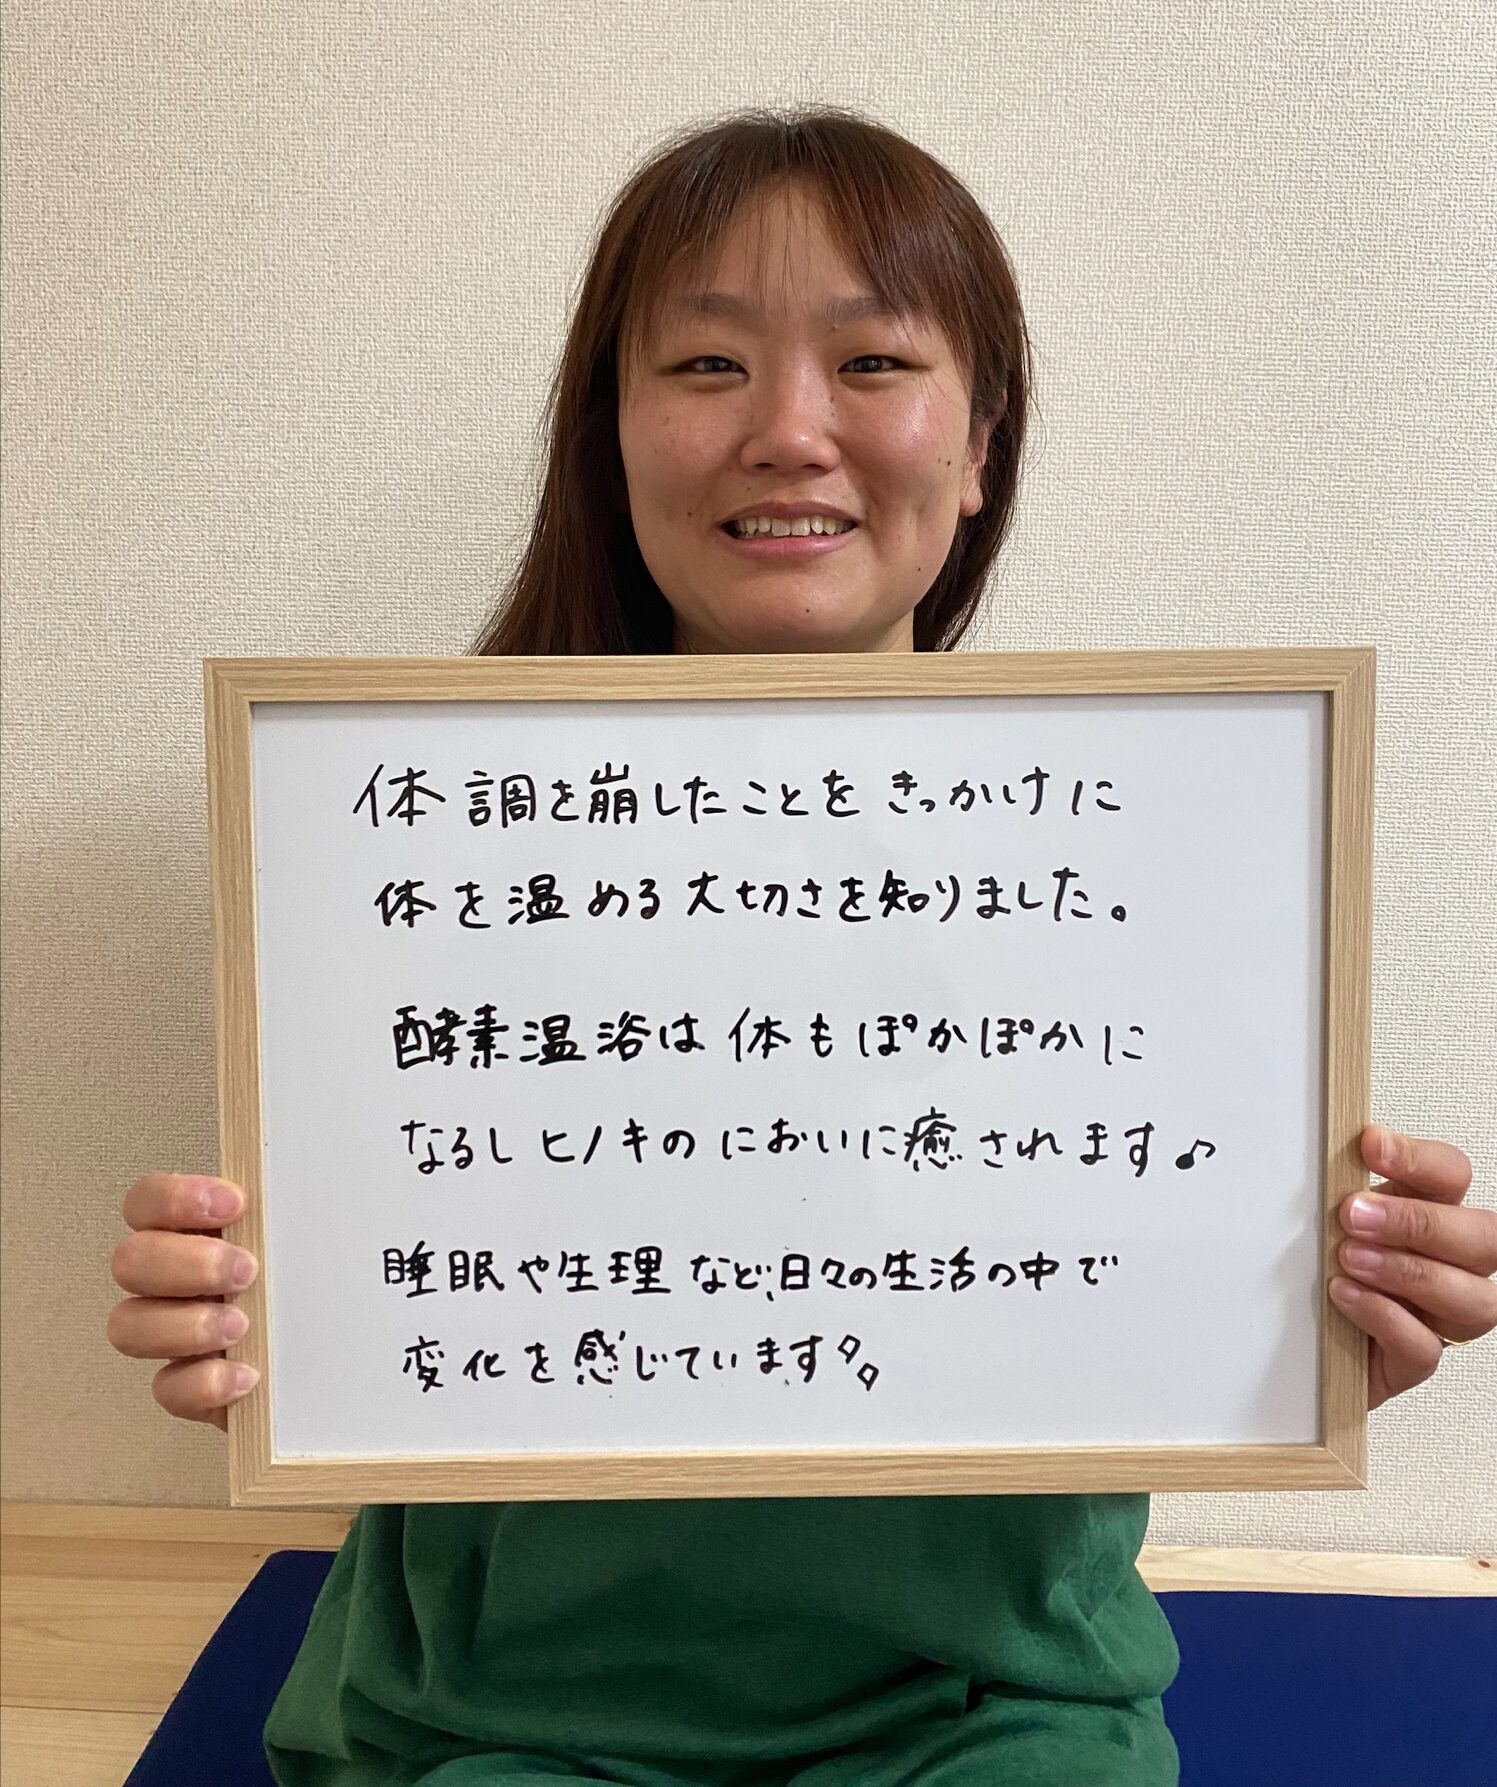 体調を崩したことをきっかけに
体を温める大切さを知りました。
酵素温浴は体もぽかぽかに
なるしヒノキのにおいに癒されます♪
睡眠や生理など、日々の生活の中で
変化を感じています